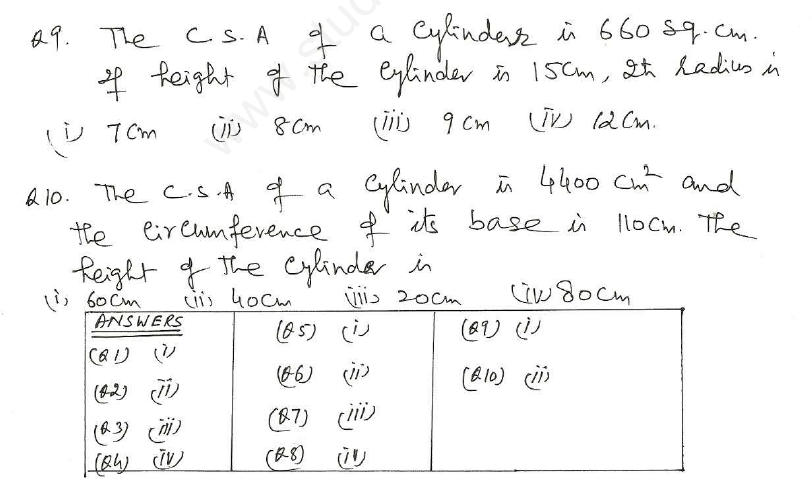 Q9. The C.S.A of a Cylinder is 660 sq. cm.
If height of the Cylinder is 15cm, its radius is
(i) 7cm (ii) 8cm (iii) 9cm (iv) 12cm.
Q10. The C.S.A of a Cylinder is 4400 cm² and
the Circumference of its base is 110cm. The
height of the Cylinder is
(i) 60cm (ii) 40cm (iii) 20cm (iv) 80cm
ANSWERS
(Q1) (i)
(Q2) (ii)
(Q3) (iii)
(Q4) (iv)
(Q5) (i)
(Q6) (ii)
(Q7) (iii)
(Q8) (iv)
(Q9) (i)
(Q10) (ii)